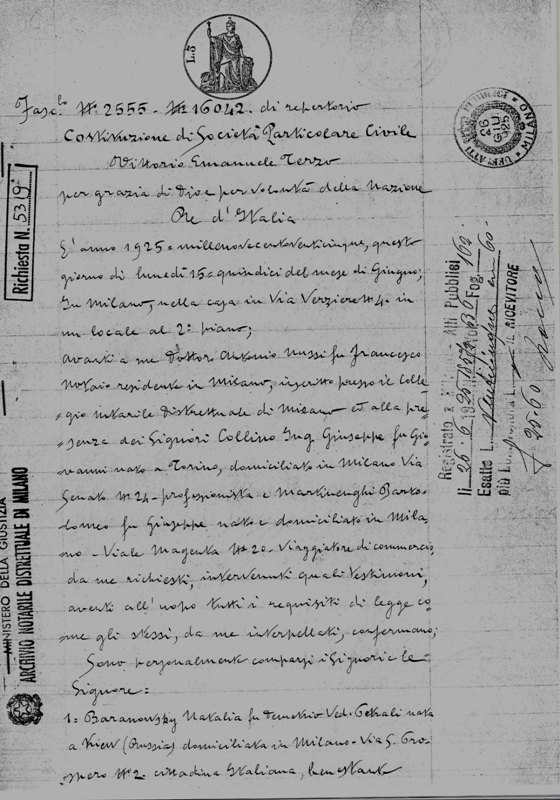 L.3
Fasc.lo N.° 2555 - N.° 16042. di repertorio
Costituzione di Società Particolare Civile
Vittorio Emanuele Terzo
per grazia di Dio e per volontà della Nazione
Re d'Italia
L'anno 1925 = millenovecentoventicinque, questo
giorno di lunedì 15 = quindici del mese di Giugno;
In Milano, nella casa in Via Verziere N° 4. in
un locale al 2° piano;
avanti a me Dottor Antonio Nussi fu Francesco
Notaio residente in Milano, inscritto presso il Colle=
gio notarile distrettuale di Milano ed alla pre=
=senza dei Signori Collino Ing. Giuseppe fu Gio=
vanni nato a Torino, domiciliato in Milano Via
Senato N. 24 - professionista e Martinenghi Barto=
lomeo fu Giuseppe nato e domiciliato in Mila=
no - Viale Magenta N° 20 - Viaggiatore di commercio,
da me richiesti, intervenuti quali testimoni,
aventi all'uopo tutti i requisiti di legge co=
=me gli stessi, da me interpellati, confermano;
Sono personalmente comparsi i Signori e le
Signore =
1 = Baranowsky Natalia fu Demetrio Ved. nata
a Kiew (Russia) domiciliata in Milano - Via S. Pro=
=spero N° 2. cittadina Italiana, benestante
Richiesta N. 5319
MINISTERO DELLA GIUSTIZIA
ARCHIVIO NOTARILE DISTRETTUALE DI MILANO
MILANO
26
GIU
1925
Registrato a Atti Pubblici
li 26.6.1925 Fog. 160
Esatte L. 60
più L.
IL RICEVITORE